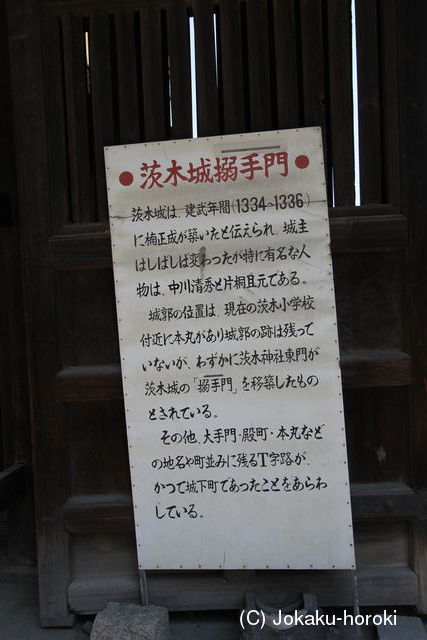 ●茨木城搦手門●
茨木城は、建武年間(1334~1336)
に楠正成が築いたと伝えられ、城主
はしばしば変わったが特に有名な人
物は、中川清秀と片桐且元である。
城郭の位置は、現在の茨木小学校
付近に本丸があり城郭の跡は残って
いないが、わずかに茨木神社東門が
茨木城の「搦手門」を移築したもの
とされている。
その他、大手門・殿町・本丸など
の地名や町並みに残るT字路が、
かつて城下町であったことをあらわ
している。
(C) Jokaku-horoki